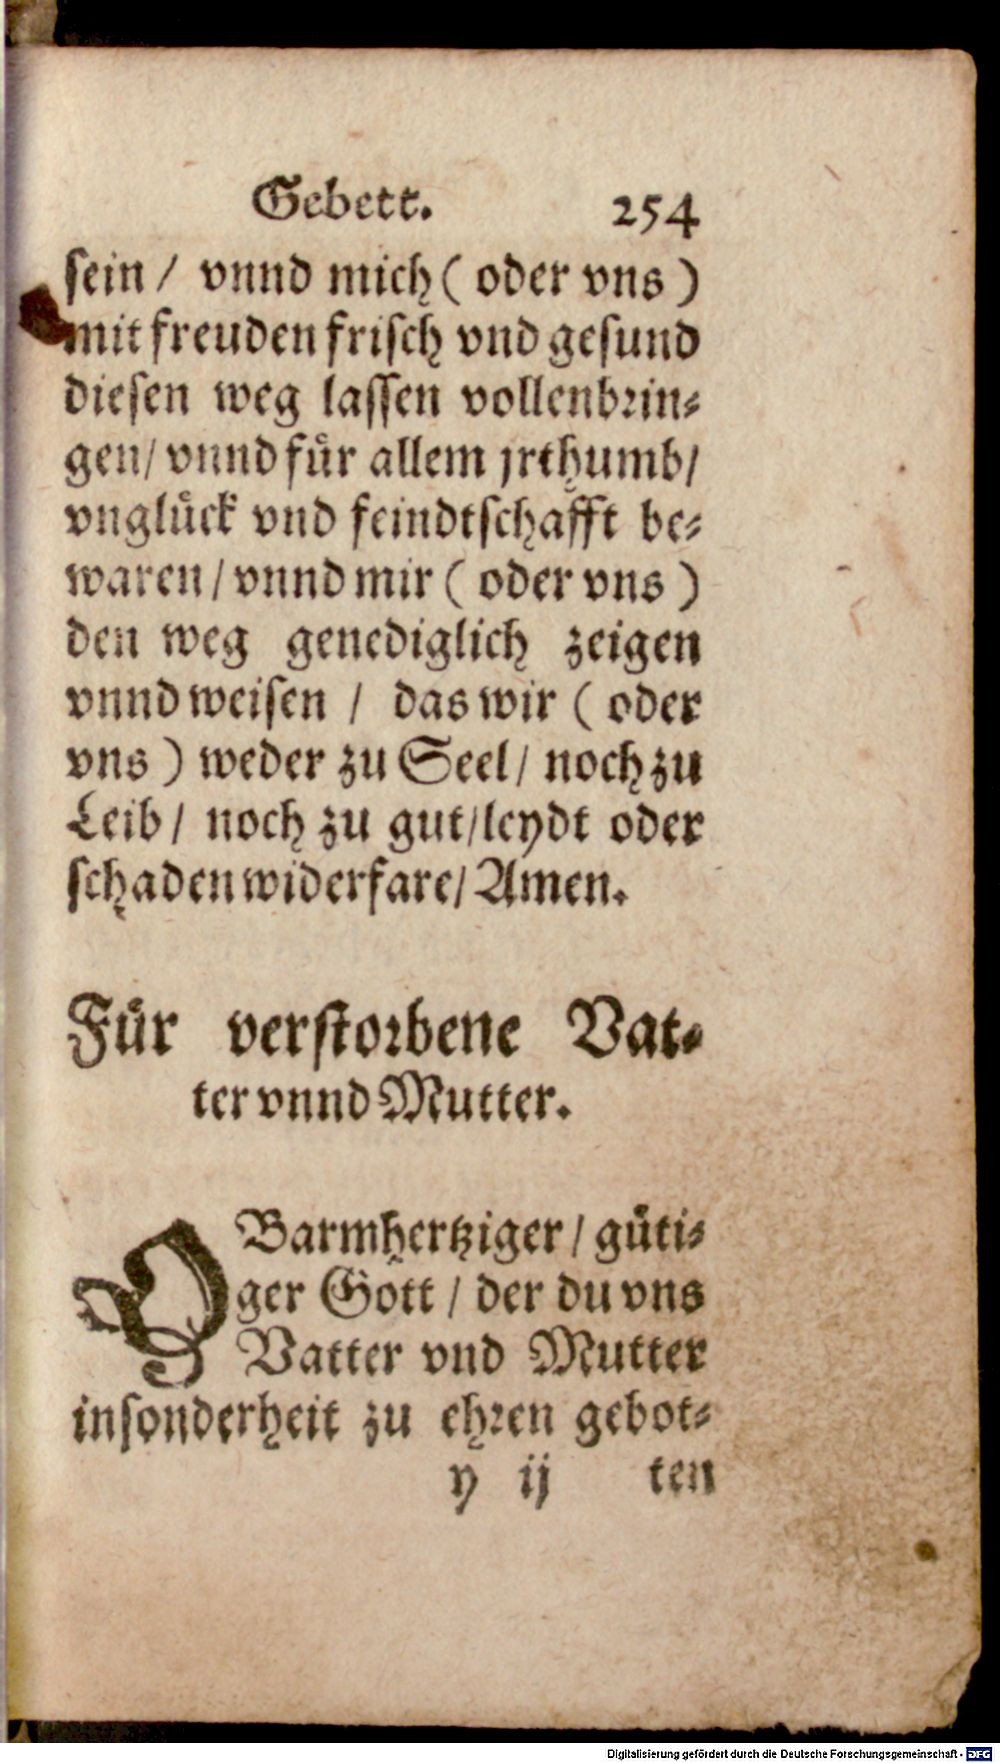 Gebett. 254
sein / vnnd mich ( oder vns )
mit freuden frisch vnd gesund
diesen weg lassen vollenbrin⸗
gen / vnnd fuͤr allem jrthumb /
vngluͤck vnd feindtschafft be⸗
waren / vnnd mir ( oder vns )
den weg genediglich zeigen
vnnd weisen / das wir ( oder
vns ) weder zu Seel / noch zu
Leib / noch zu gut / leydt oder
schaden widerfare / Amen.
Fuͤr verstorbene Vat⸗
ter vnnd Mutter.
O Barmhertziger / guͤti⸗
ger Gott / der du vns
Vatter vnd Mutter
insonderheit zu ehren gebot⸗
y ij ten
Digitalisierung gefördert durch die Deutsche Forschungsgemeinschaft - DFG